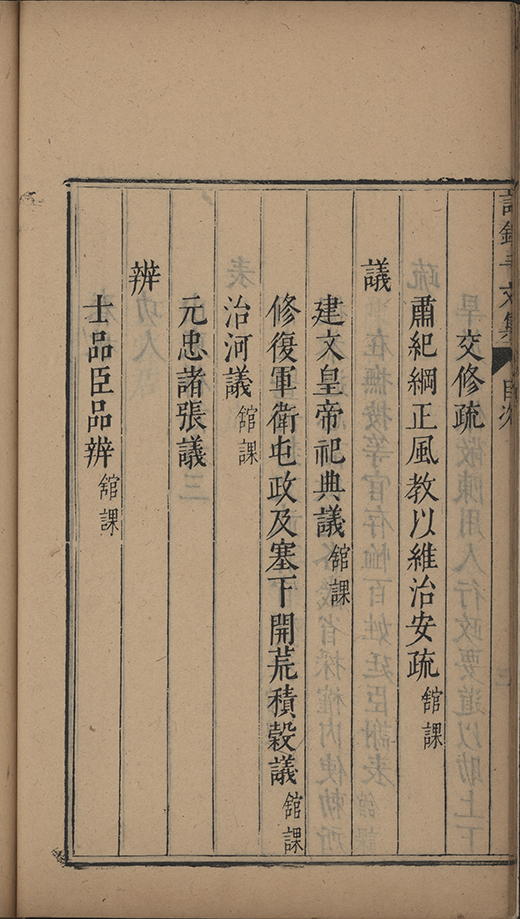 交修疏
肅紀綱正風教以維治安疏 舘課
議
建文皇帝祀典議 舘課
修復軍衛屯政及塞下開荒積穀議 舘課
治河議 舘課
元忠諸張議
辨
士品臣品辨 舘課
文集 目次